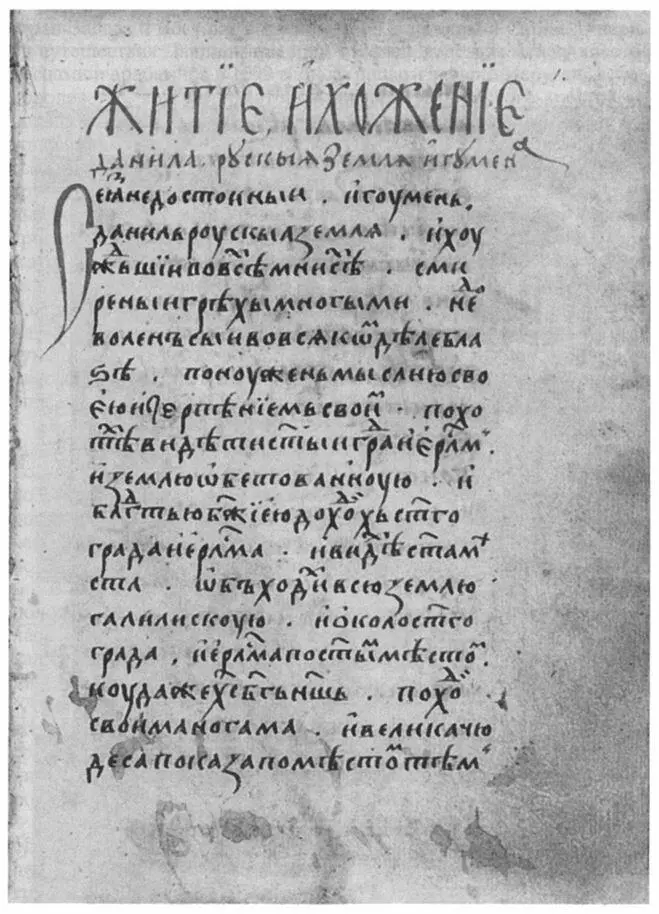 ЖИТЇЕ, ИХОЖЕНЇЕ
данила. рускыꙗ земля игумена
Се ꙗзнедостоиныи. игоумень.
данильроускыꙗземля. ихоу
жьшїивовсѣⷯмнисѣⷯ. сми
реныигрѣхымногыми. не
воленъсыивовсякѡⷨдѣлебла
ѕѣ. поноуженьмыслиюсво
еюи нетерпѣнїемьсвоиⷨ. похо
тѣⷯвидѣтистыиграⷣиерⷭлм҃ъ.
иземлюѡбетованноую. и
блгⷣтьюбж҃їеюдохоⷣхъстг҃о
градаиерⷭлма. ивидⷯѣстаꙗмⷭ
ста. ѡбъходиⷯвсюземлю
галилискоую. иоколостг҃о
града, иерⷭлмапостымъмѣстоⷨ.
коудажехсбг҃ънш҃ь. похоⷣ
своиманогама. ивеликачю
десапоказапомѣстоⷨтѣмъ